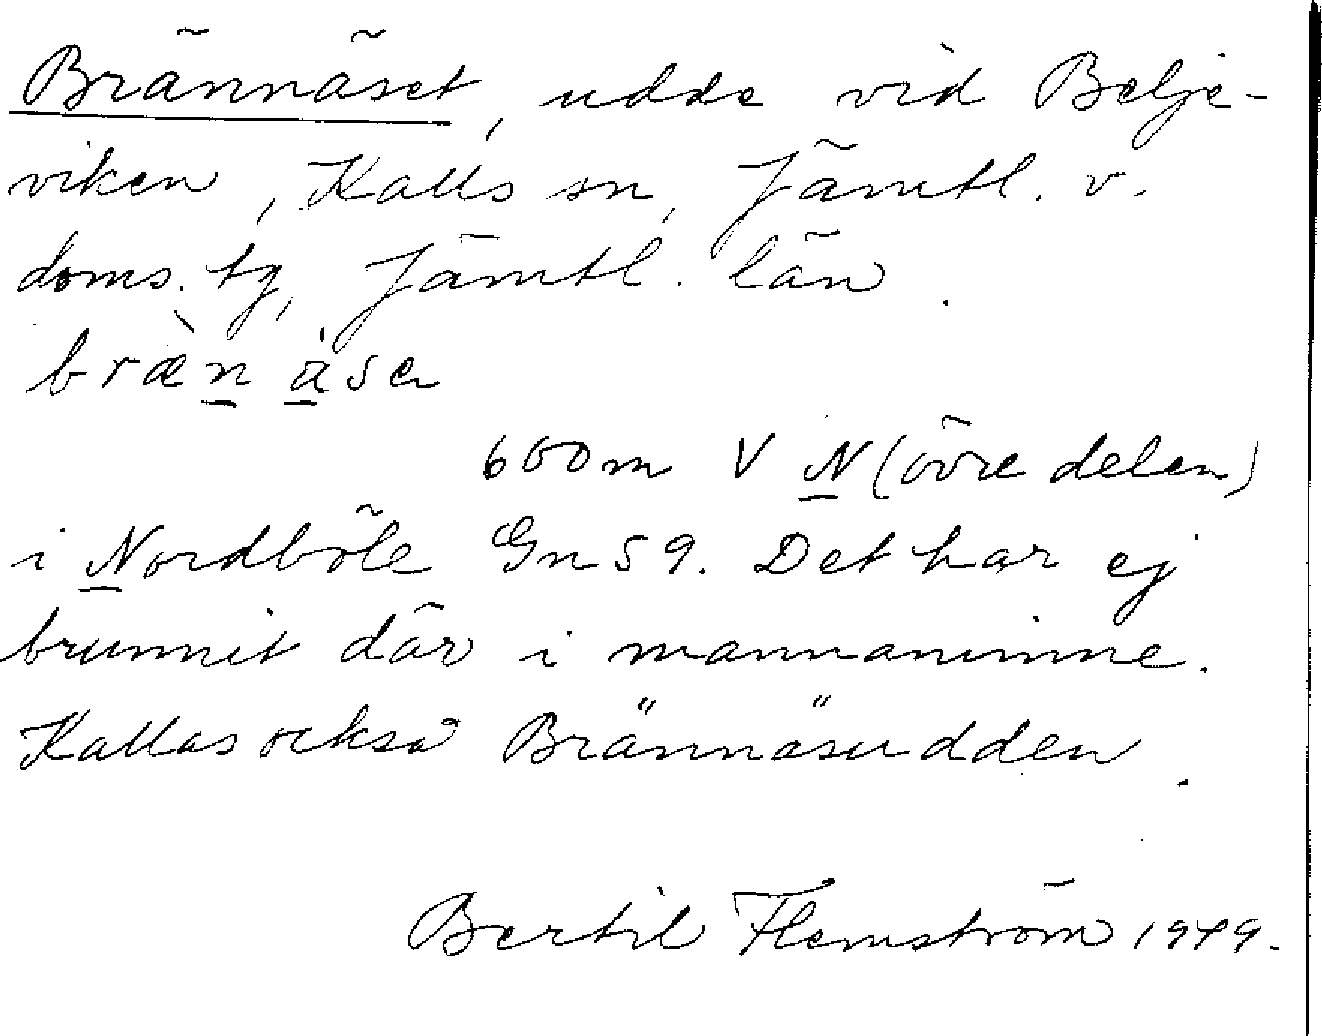 Brännäset, udde vid Belje-
viken, Kalls sn, Jämtl. v.
doms. tg, Jämtl. län.
bræ̀n äse
600 m V N (övre delen)
i Nordböle Gn 59. Det har ej
brunnit där i mannaminne.
Kallas också Brännäsudden.
Bertil Flemström 1949.